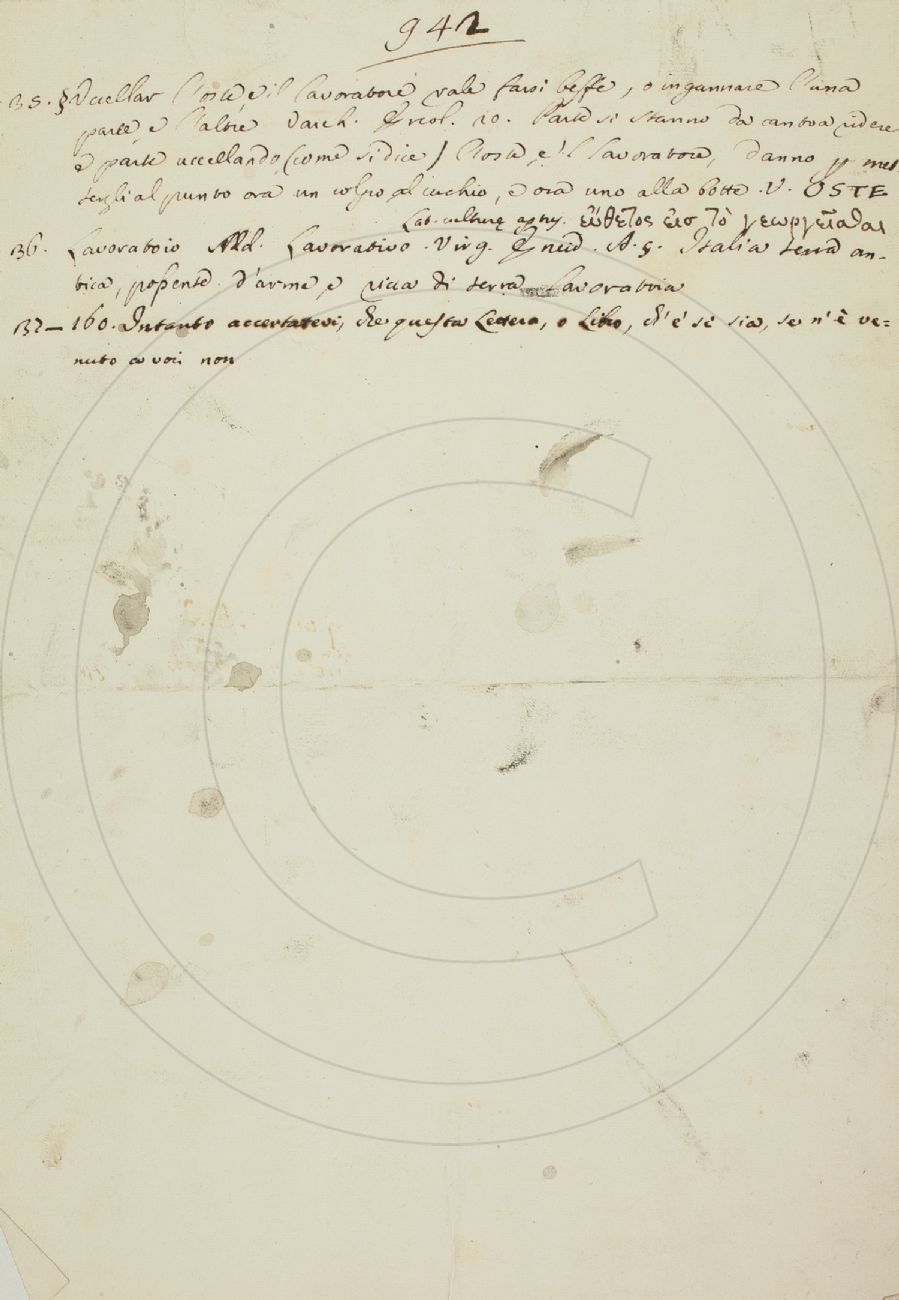 942
35. § Uccellar l'oste e il lavoratore vale farsi beffe, o ingannare l'una
parte, e l'altre Varch. Ercol. 10. Parte si stanno da canto a ridere
e parte uccellando (come si dice) l'oste, e 'l lavoratore, danno p met
tergli al punto ora un colpo al cuchio, e ora uno alla botte. V. OSTE
Lat. culturę aptus. εὔθετος εισ τὸ γεωργεῖσθαι
36. Lavoratoio Add. Lavorativo. Virg. Eneid. A. S. Italia terra an-
tica, possente d'arme, e ricca di terra lavoratoia
37— 160. Intanto accertatevi, che questa Lettera, o Libro, ch'e' si sia, se n'è ve=
nuto a voi non